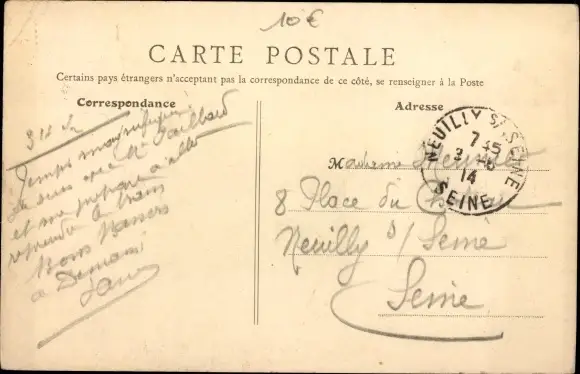 10€
CARTE POSTALE
Certains pays étrangers n'acceptant pas la correspondance de ce côté, se renseigner à la Poste
Correspondance
Adresse
Temps magnifique.
Je suis avec Mr Gaillard
et me prépare à aller
reprendre le train
Bons Baisers
a Demain
Madame
8 Place du Château
Neuilly s/ Seine
Seine
NEUILLY S/ SEINE
7 45
14
SEINE